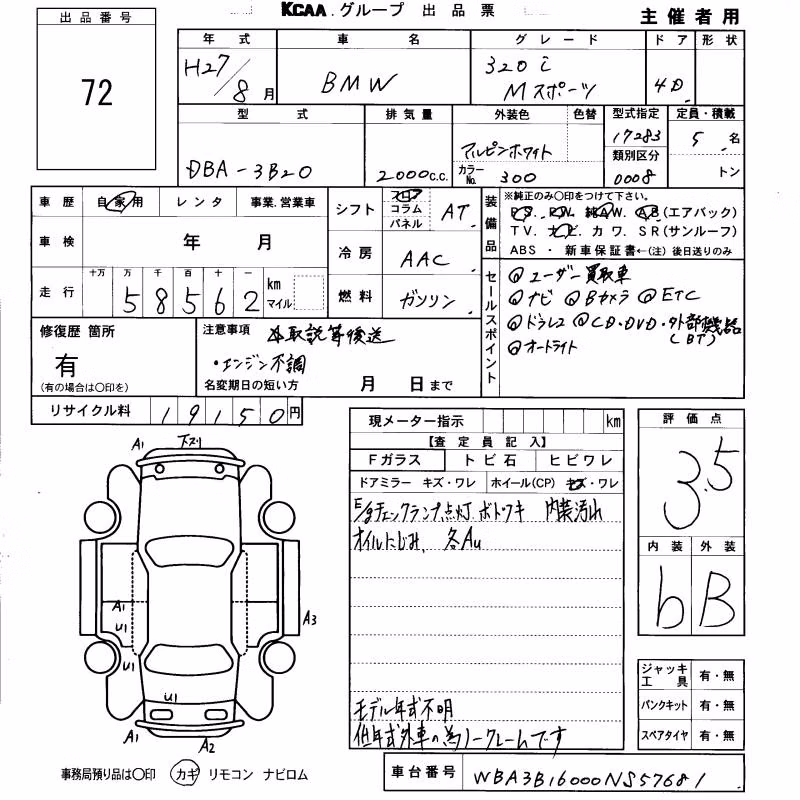 KCAA.グループ 出品票 主催者用
出品番号
72
年式 車名 グレード ドア 形状
H27/8月 BMW 320i Mスポーツ 4D
型式 排気量 外装色 色替 型式指定 定員・積載
DBA-3B20 2000c.c. アルピンホワイト 17283 5名
カラーNo. 300 類別区分 0008 トン
車歴 自家用 レンタ 事業.営業車
車検 年 月
走行 十万 万 千 百 十 km マイル
58562
シフト フロア コラム パネル AT
冷房 AAC
燃料 ガソリン
装備品
※純正のみ○印をつけて下さい。
P.S. P.W. 純A.W. A.B(エアバック)
TV. ナビ. カワ. SR(サンルーフ)
ABS ・ 新車保証書←(注) 後日送りのみ
セールスポイント
◎ユーザー買取車
◎ナビ ◎Bカメラ ◎ETC
◎ドラレコ ◎CD・DVD・外部機器(BT)
◎オートライト
修復歴 箇所
有
(有の場合は○印を)
注意事項 取説等後送
・エンジン不調
名変期日の短い方 月 日まで
リサイクル料 19150円
現メーター指示 km
【査定員記入】
Fガラス トビ石 ヒビワレ
ドアミラー キズ・ワレ ホイール(CP) キズ・ワレ
E/gチェックランプ点灯. ボトワキ 内装汚れ
オイルにじみ. 各AU
モデル年式不明
但年式外車の為ノークレームです
評価点
3.5
内装 外装
b B
ジャッキ工具 有・無
パンクキット 有・無
スペアタイヤ 有・無
A1 下スリ
A1
U1
A3
U1
A1 A2
事務局預り品は○印 カギ リモコン ナビロム
車台番号 WBA3B16000NS57681